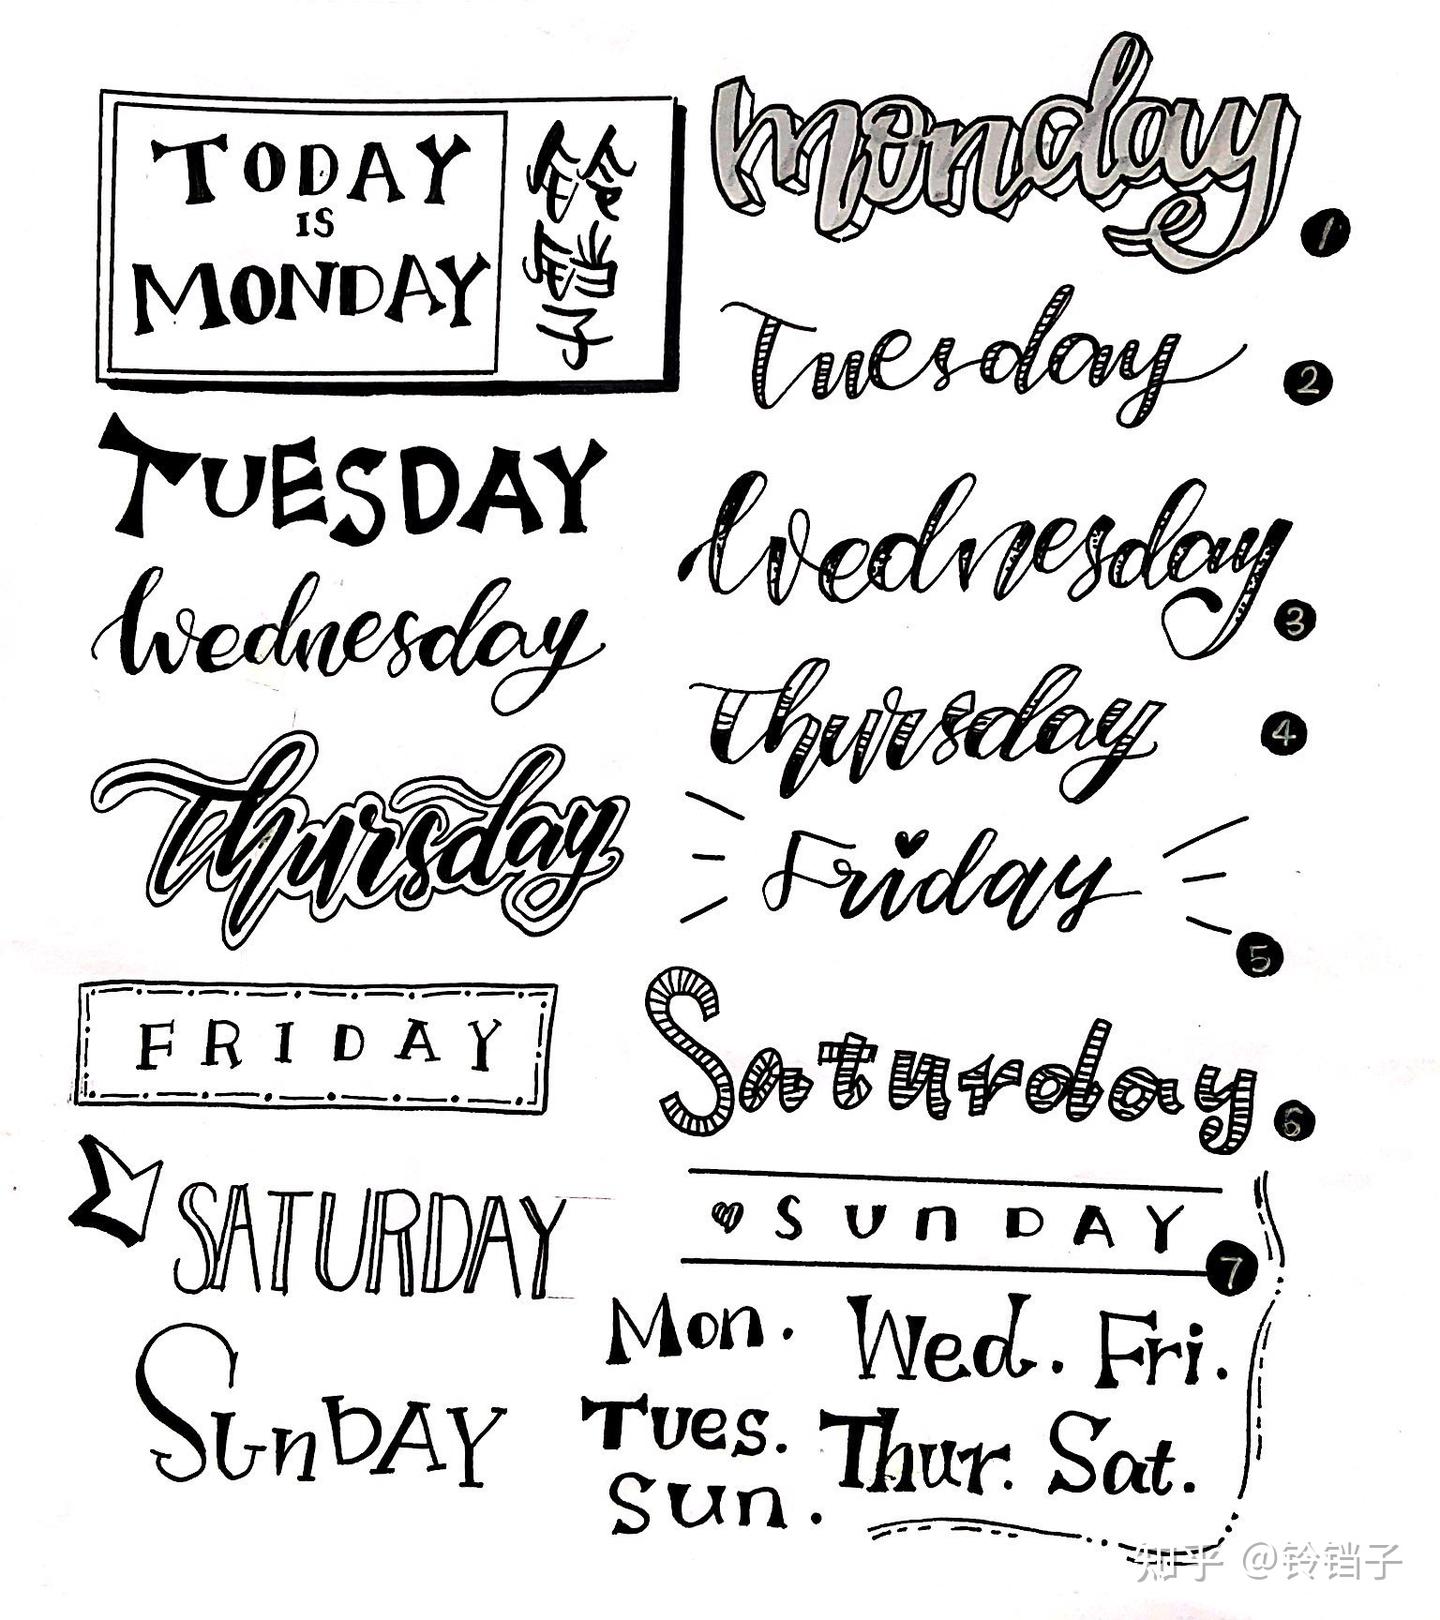 TODAY
IS
MONDAY
铃铛子
TUESDAY
Wednesday
Thursday
FRIDAY
SATURDAY
SunDAY
monday
1
Tuesday
2
Wednesday
3
Thursday
4
Friday
5
Saturday
6
SunDAY
7
Mon. Wed. Fri.
Tues. Thur. Sat.
Sun.
知乎 @铃铛子